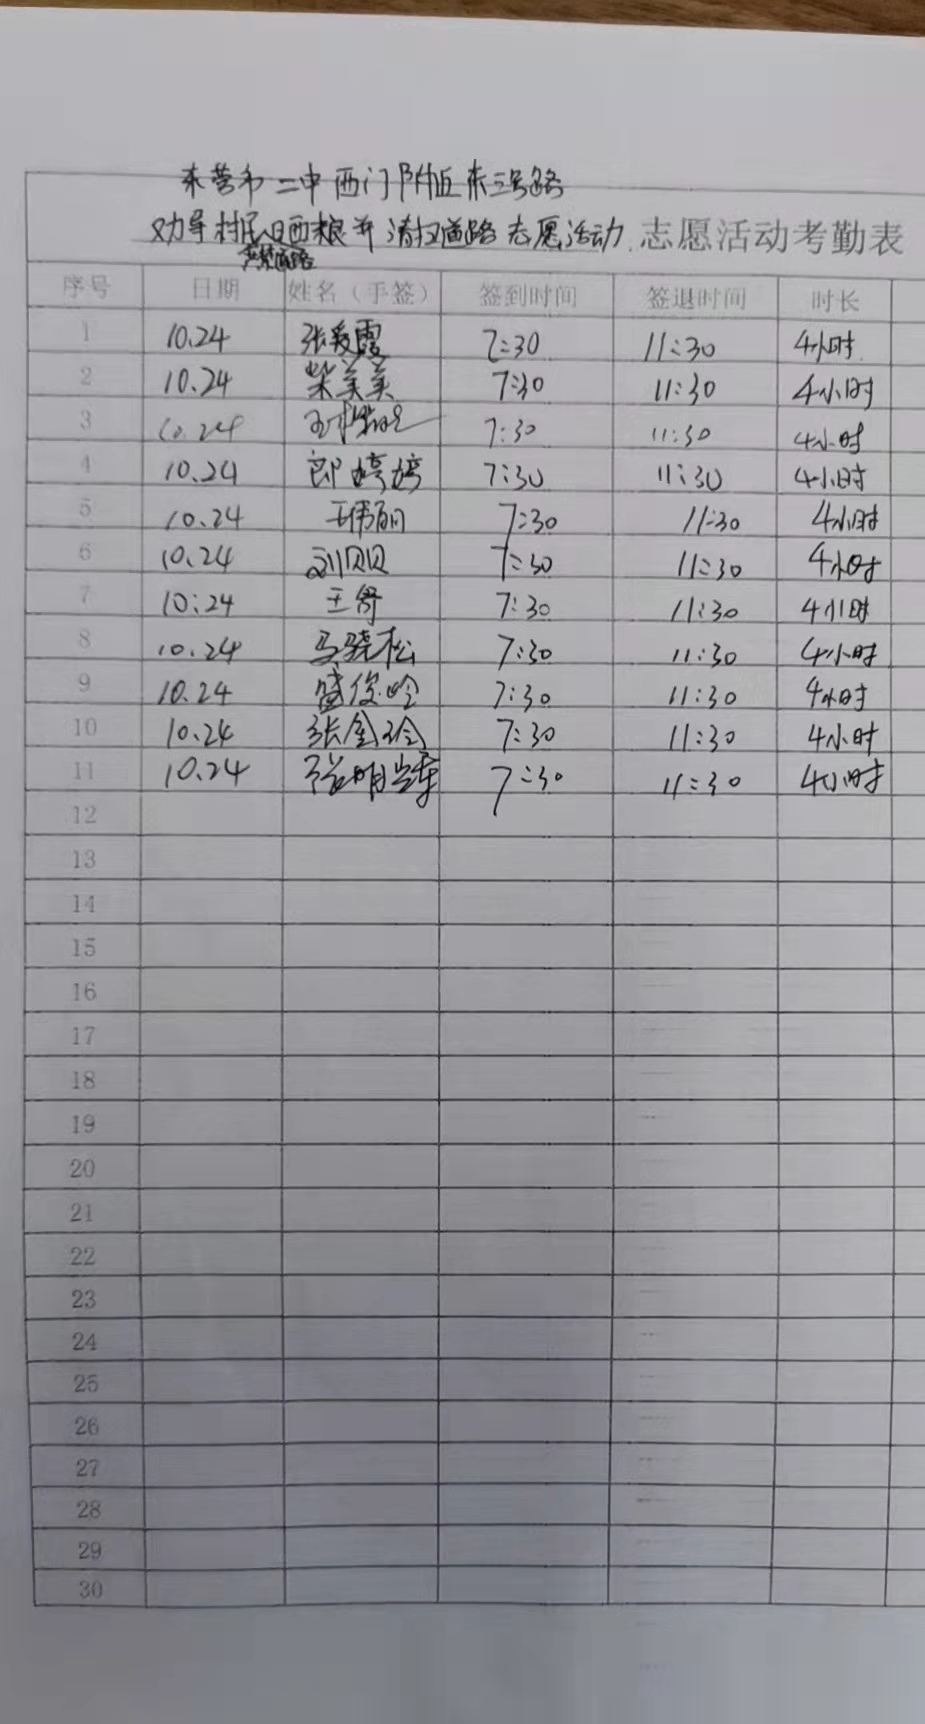 东营市二中西门附近东三路
劝导村民晒粮并清扫道路志愿活动 志愿活动考勤表
占道路
序号 日期 姓名（手签） 签到时间 签退时间 时长
1 10.24 张爱霞 7:30 11:30 4小时
2 10.24 柴美美 7:30 11:30 4小时
3 10.24 7:30 11:30 4小时
4 10.24 郎婷婷 7:30 11:30 4小时
5 10.24 王伟丽 7:30 11:30 4小时
6 10.24 刘贝贝 7:30 11:30 4小时
7 10:24 王舒 7:30 11:30 4小时
8 10.24 马骁松 7:30 11:30 4小时
9 10.24 盛俊岭 7:30 11:30 4小时
10 10.24 张金玲 7:30 11:30 4小时
11 10.24 7:30 11:30 4小时
12
13
14
15
16
17
18
19
20
21
22
23
24
25
26
27
28
29
30